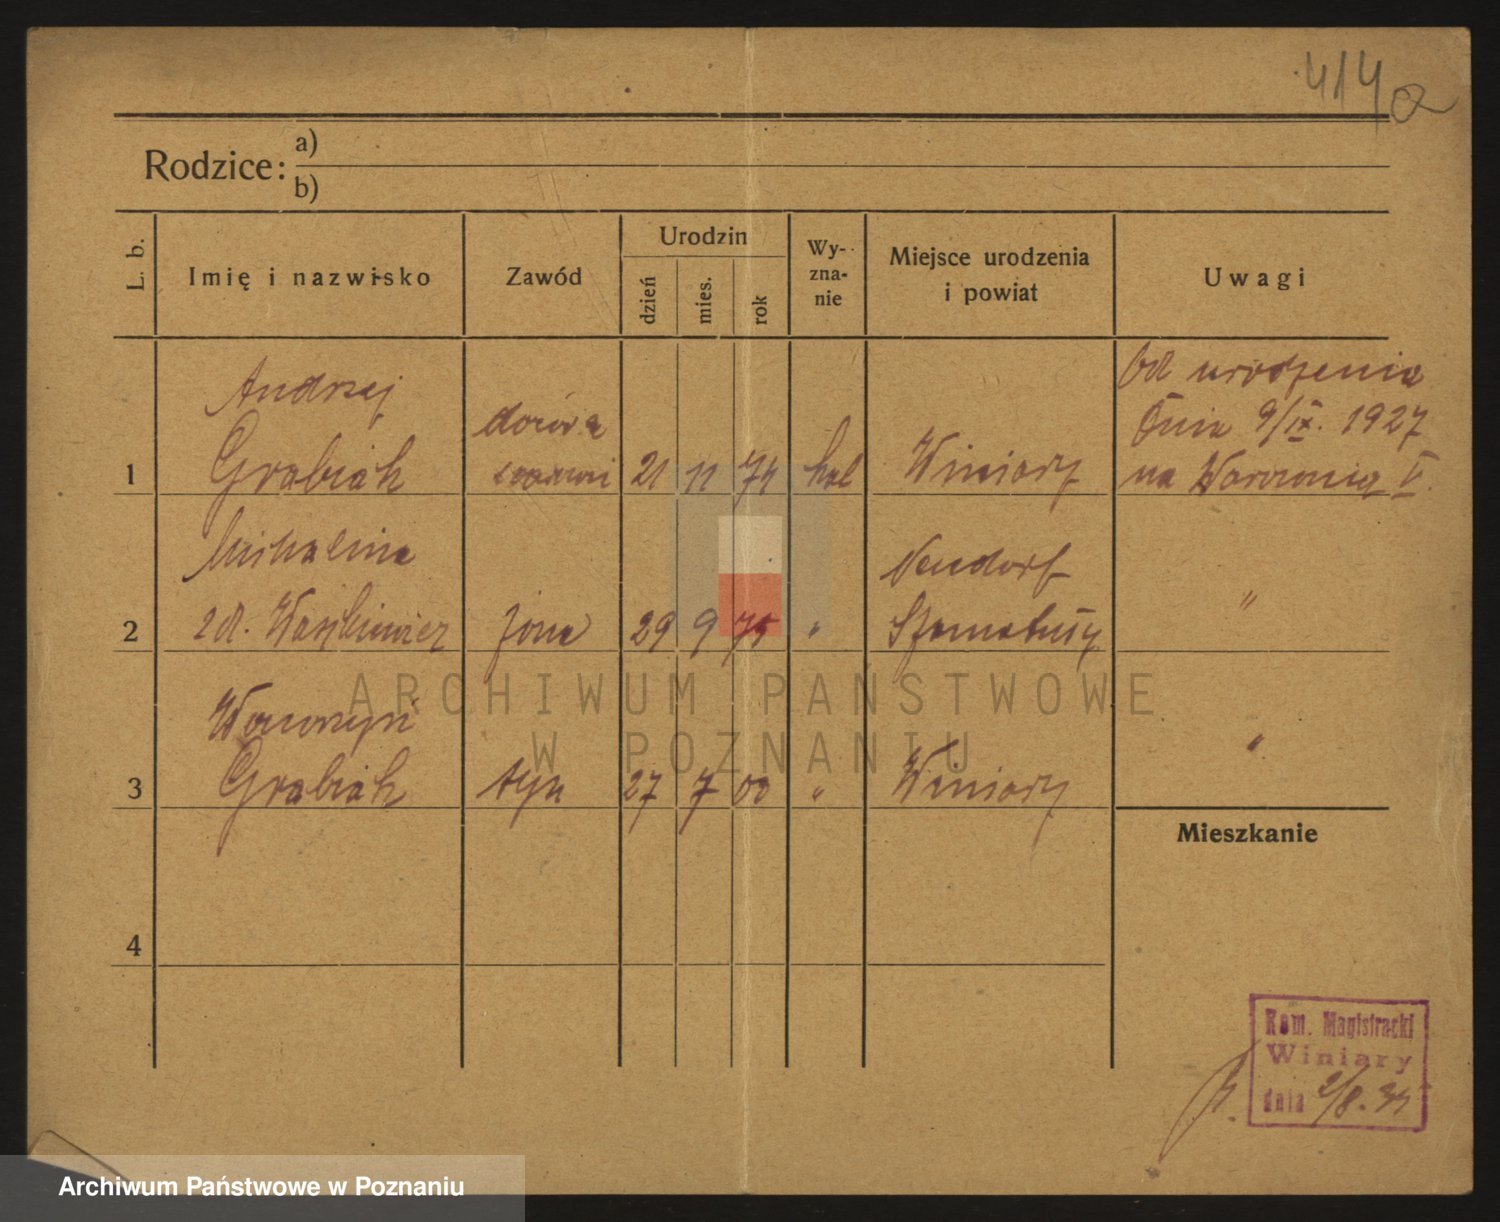 414a
Rodzice: a)
b)
L. b.
Imię i nazwisko
Zawód
Urodzin
dzień
mies.
rok
Wy-
zna-
nie
Miejsce urodzenia
i powiat
Uwagi
1
Andrzej
Grabiak
dozórca
21 11 74
kat
Winiary
Od urodzenia
Dnia 9/IX. 1927
na
2
Michalina
zd. Waszkiewicz
żona
29 9 75
"
Neudorf
Szamotuły
"
3
Wawrzyn
Grabiak
syn
27 7 00
"
Winiary
"
4
Mieszkanie
Kom. Magistracki
Winiary
dnia 2/8.
ARCHIWUM PAŃSTWOWE
W POZNANIU
Archiwum Państwowe w Poznaniu